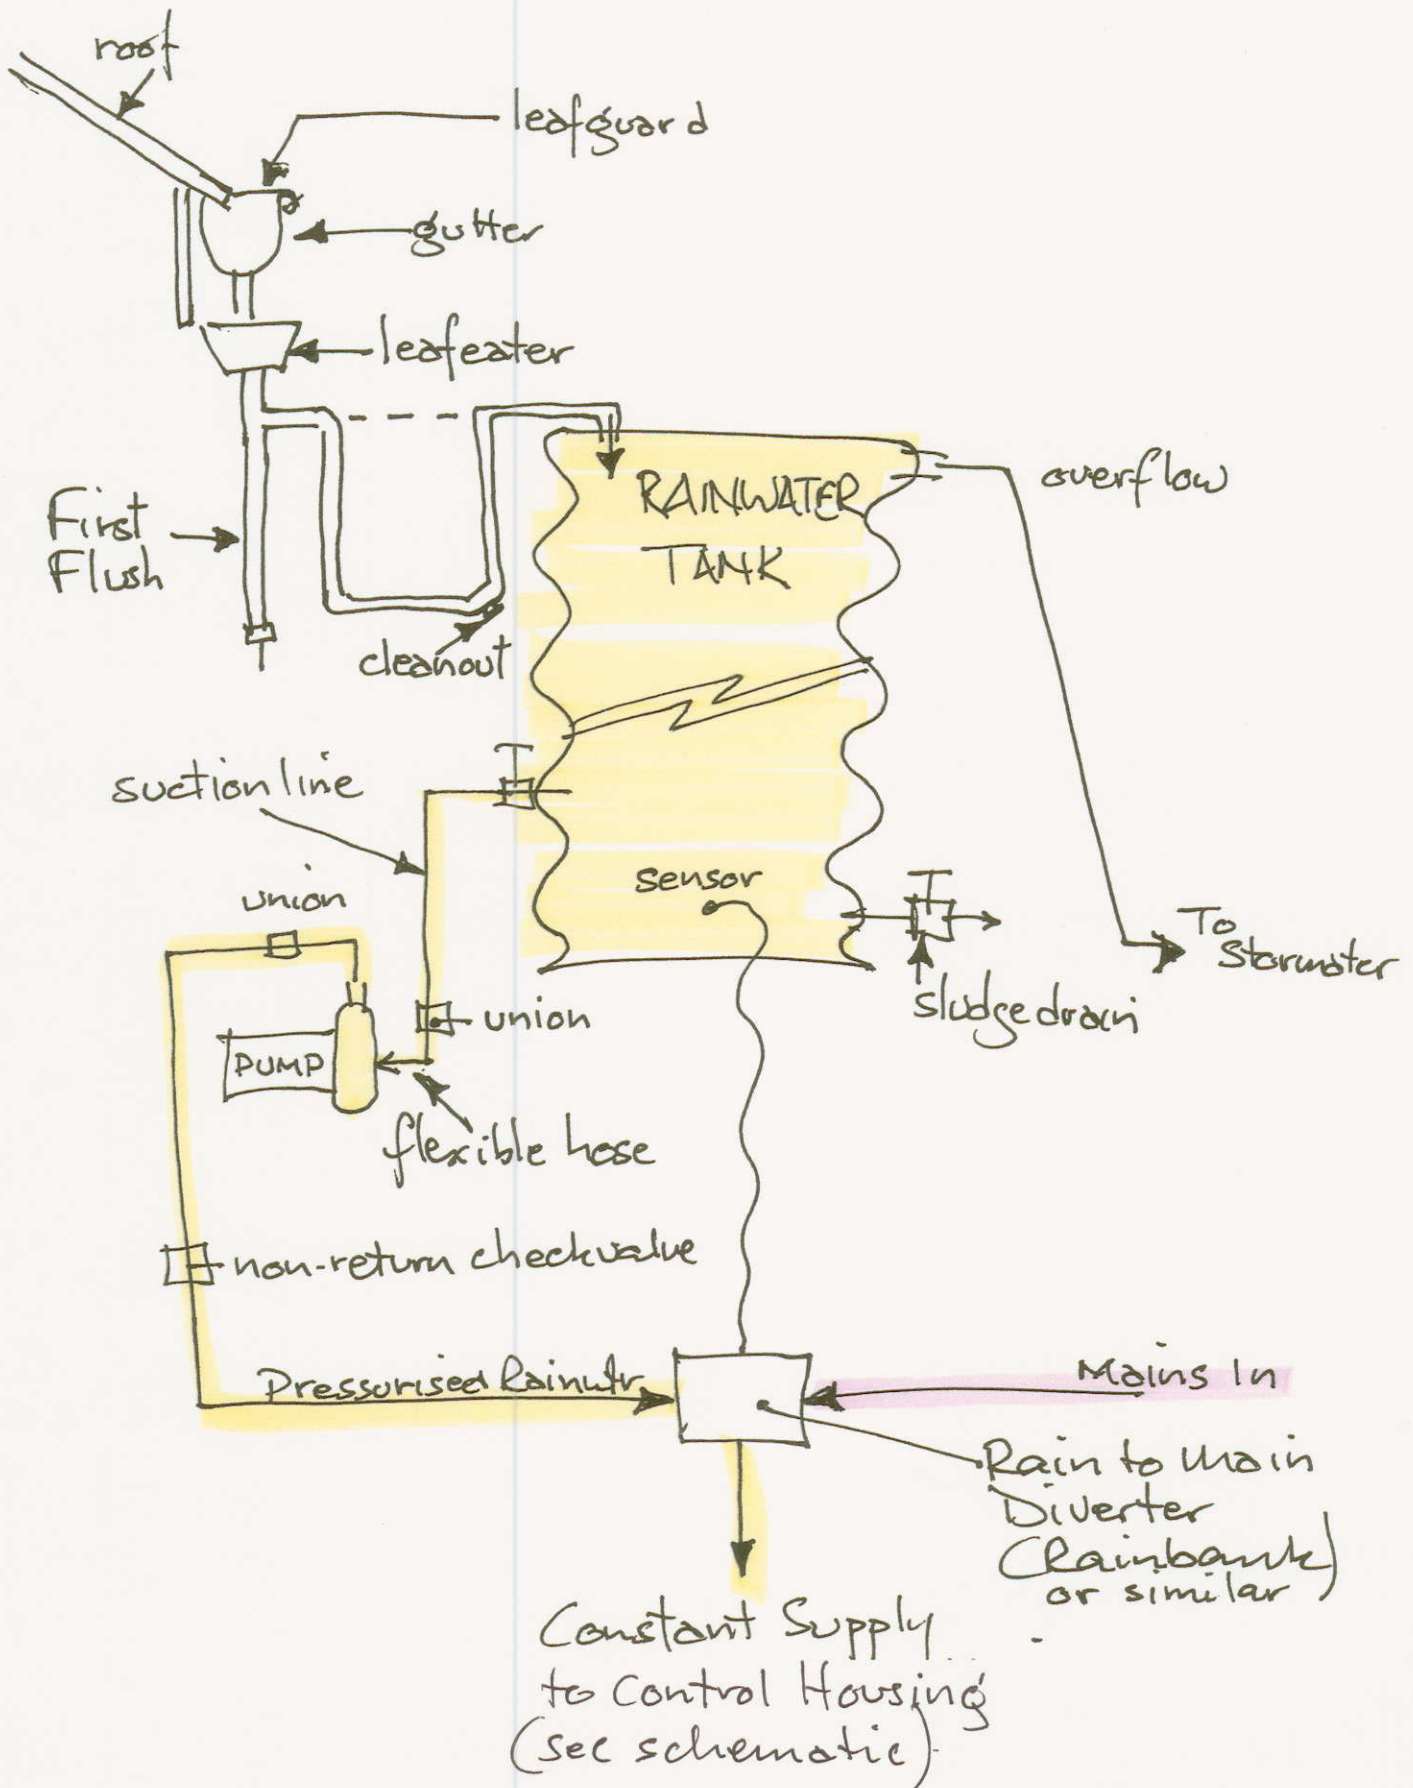 roof
leafguard
gutter
leafeater
First
Flush
cleanout
RAINWATER
TANK
overflow
suction line
union
sensor
To
Stormwater
sludge drain
union
PUMP
flexible hose
non-return checkvalve
Pressurised Rainwtr
Mains In
Rain to Main
Diverter
(Rainbank)
or similar
Constant Supply
to Control Housing
(see schematic)